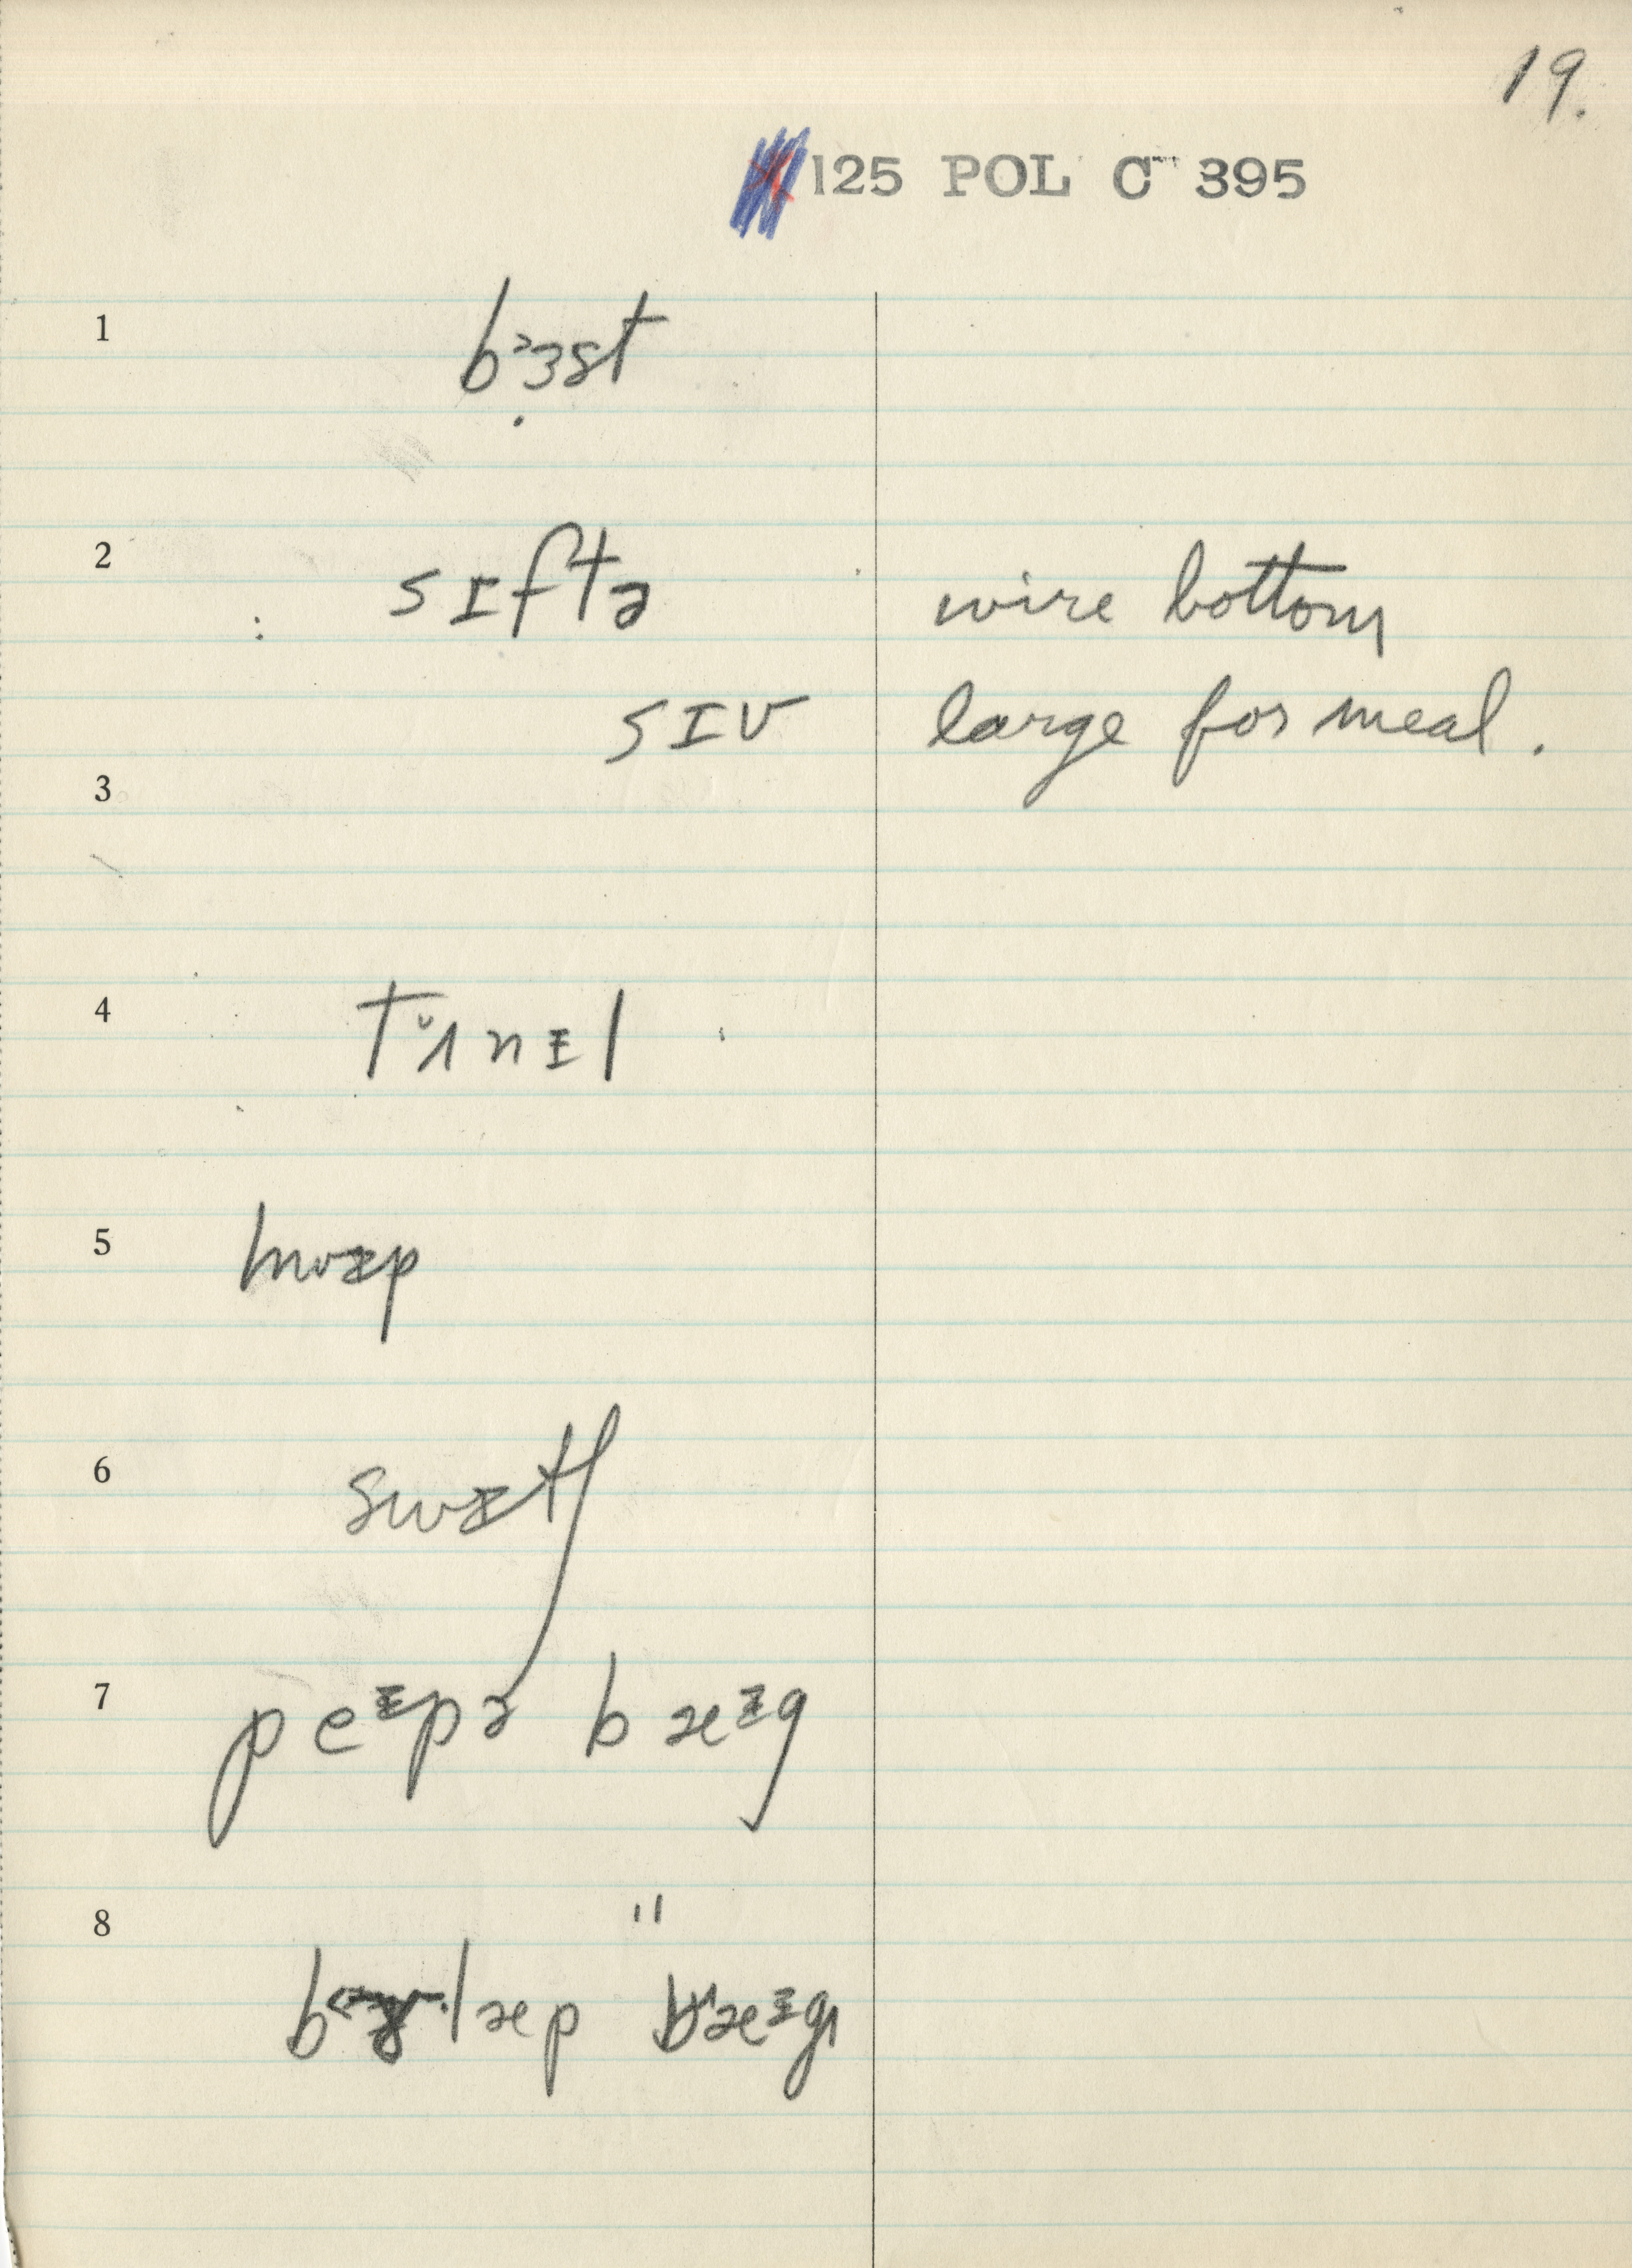 19.
125 POL C 395
1 b˃ɜst
2 sɪftə wire bottom
sɪv large for meal.
3
4 tʌ̆nɨl
5
6
7 peᵻpə bæᵻg
8 "
læp bæᵻg